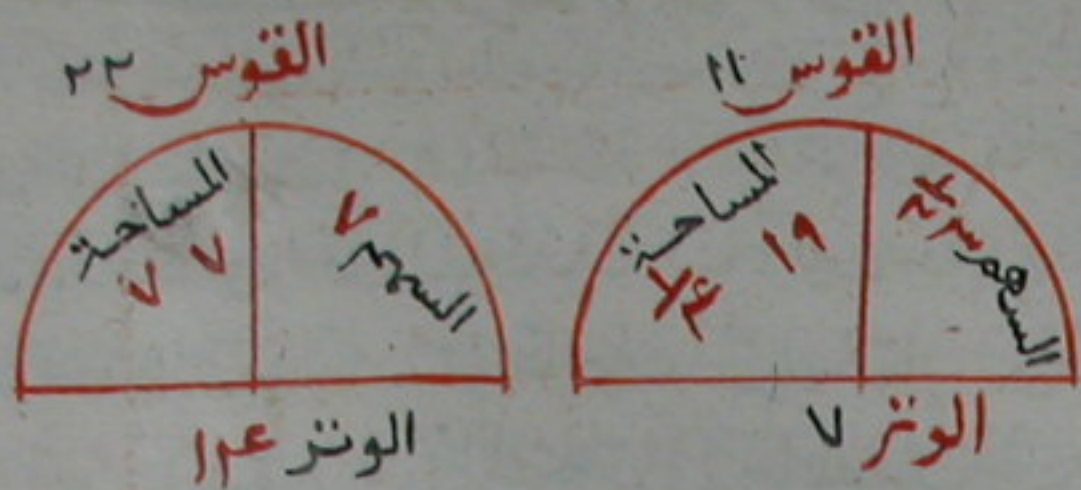 القوس ١١
المساحة ١٩ ١/٤
السهم ٣ ١/٢
الوتر ٧
القوس ٢٢
المساحة ٧٧
السهم ٧
الوتر ١٤